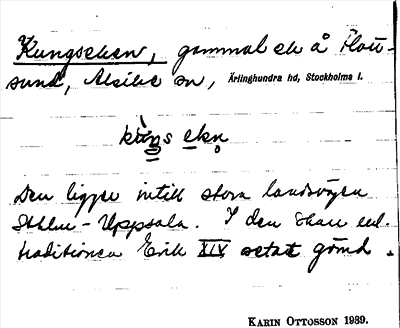 Kungseken, gammal ek å Flott-
sund, Alsike sn, Ärlinghundra hd, Stockholms l.
kùŋs ekn̥
Den ligger intill stora landsvägen
Sthlm - Uppsala. I den skall enl.
traditionen Erik XIV setat gömd.
KARIN OTTOSSON 1939.